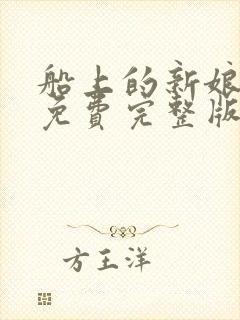 船上的新娘
免费完整版
方王洋